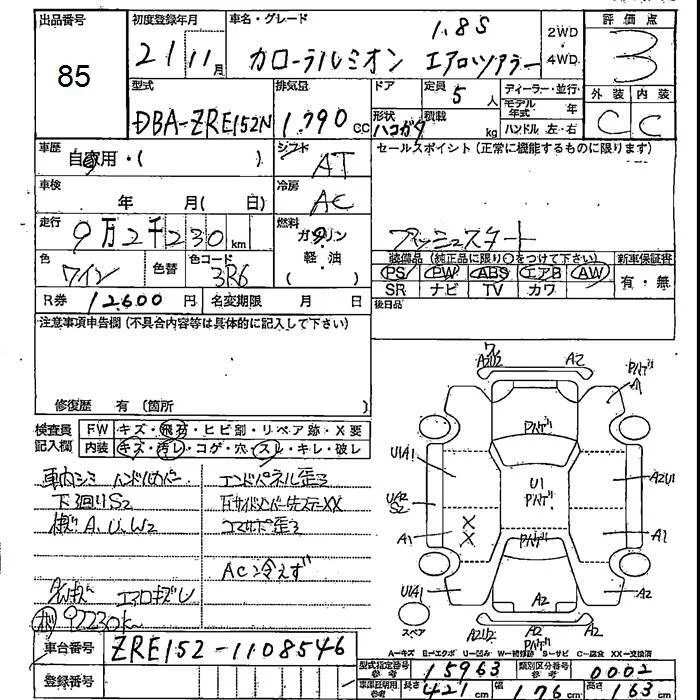 出品番号 初度登録年月 車名・グレード 1.8S 2WD・4WD 評価点
85 21 11月 カローラルミオン エアロツアラー 3
型式 排気量 ドア 定員 5人 ディーラー・並行 外装 内装
DBA-ZRE152N 1,790cc 形状 ハコガタ 積載 kg モデル年式 年 ハンドル 左・右 C C
車歴 自家用・( ) シフト AT セールスポイント (正常に機能するものに限ります)
車検 年 月( 日) 冷房 AC
走行 9万2千230km 燃料 ガソリン・軽油 プッシュスタート
色 ワイン 色替 色コード 3R6 装備品 (純正品に限り○をつけて下さい) 新車保証書
PS PW ABS エアB AW 有・無
SR ナビ TV カワ
R券 12,600円 名変期限 月 日 後日品
注意事項申告欄 (不具合内容等は具体的に記入して下さい)
修復歴 有 (箇所 )
検査員記入欄 FW キズ・飛石・ヒビ割・リペア跡・X要
内装 キズ・汚レ・コゲ・穴・スレ・キレ・破レ
車内シミ ハンドルカバー エンドパネル歪ミ
下廻りS2
A, U, W2 コアサポ歪ミ
AC冷えず
92230km
車台番号 ZRE152-1108546
登録番号
A2U2 A2 Pハゲ A1
Pハゲ
U1A1 U1 Pハゲ A2U1
UA2 S2
A1 X X Pハゲ A1
U1A1 A2 A2
スペア A2U2 A2 Pハゲ
A―キズ E―エクボ U―凹み W―補修跡 S―サビ C―腐食 XX―交換済
型式指定番号 参考 15963 類別区分番号 参考 0002
車庫証明用 参考 長さ 421cm 幅 176cm 高さ 163cm